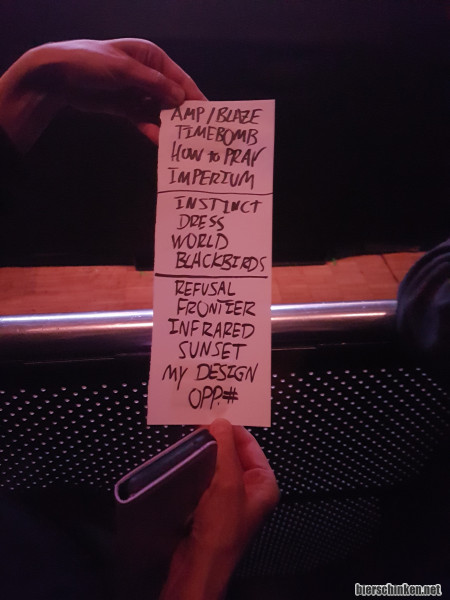 AMP/BLAZE
TIMEBOMB
HOW to PRAY
IMPERIUM
INSTINCT
DRESS
WORLD
BLACKBIRDS
REFUSAL
FRONTIER
INFRARED
SUNSET
MY DESIGN
OPP.#
bierschinken.net